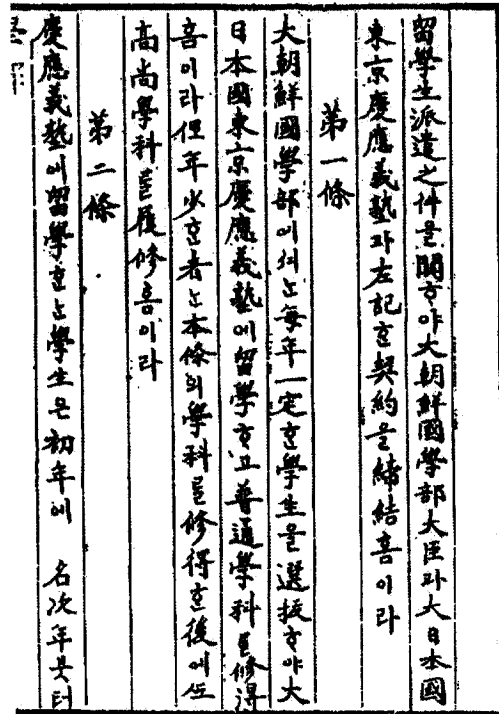 留學生派遣之件을關ᄒᆞ야大朝鮮國學部大臣과大日本國
東京慶應義塾과左記ᄒᆞᆫ契約을締結홈이라
第一條
大朝鮮國學部에셔ᄂᆞᆫ每年一定ᄒᆞᆫ學生을選拔ᄒᆞ야大
日本國東京慶應義塾에留學ᄒᆞ고普通學科를修得
홈이라但年少ᄒᆞᆫ者ᄂᆞᆫ本條의學科를修得ᄒᆞᆫ後에ᄯᅩ
高尙學科를後修홈이라
第二條
慶應義塾에留學ᄒᆞᄂᆞᆫ學生은初年에 名次年븟터